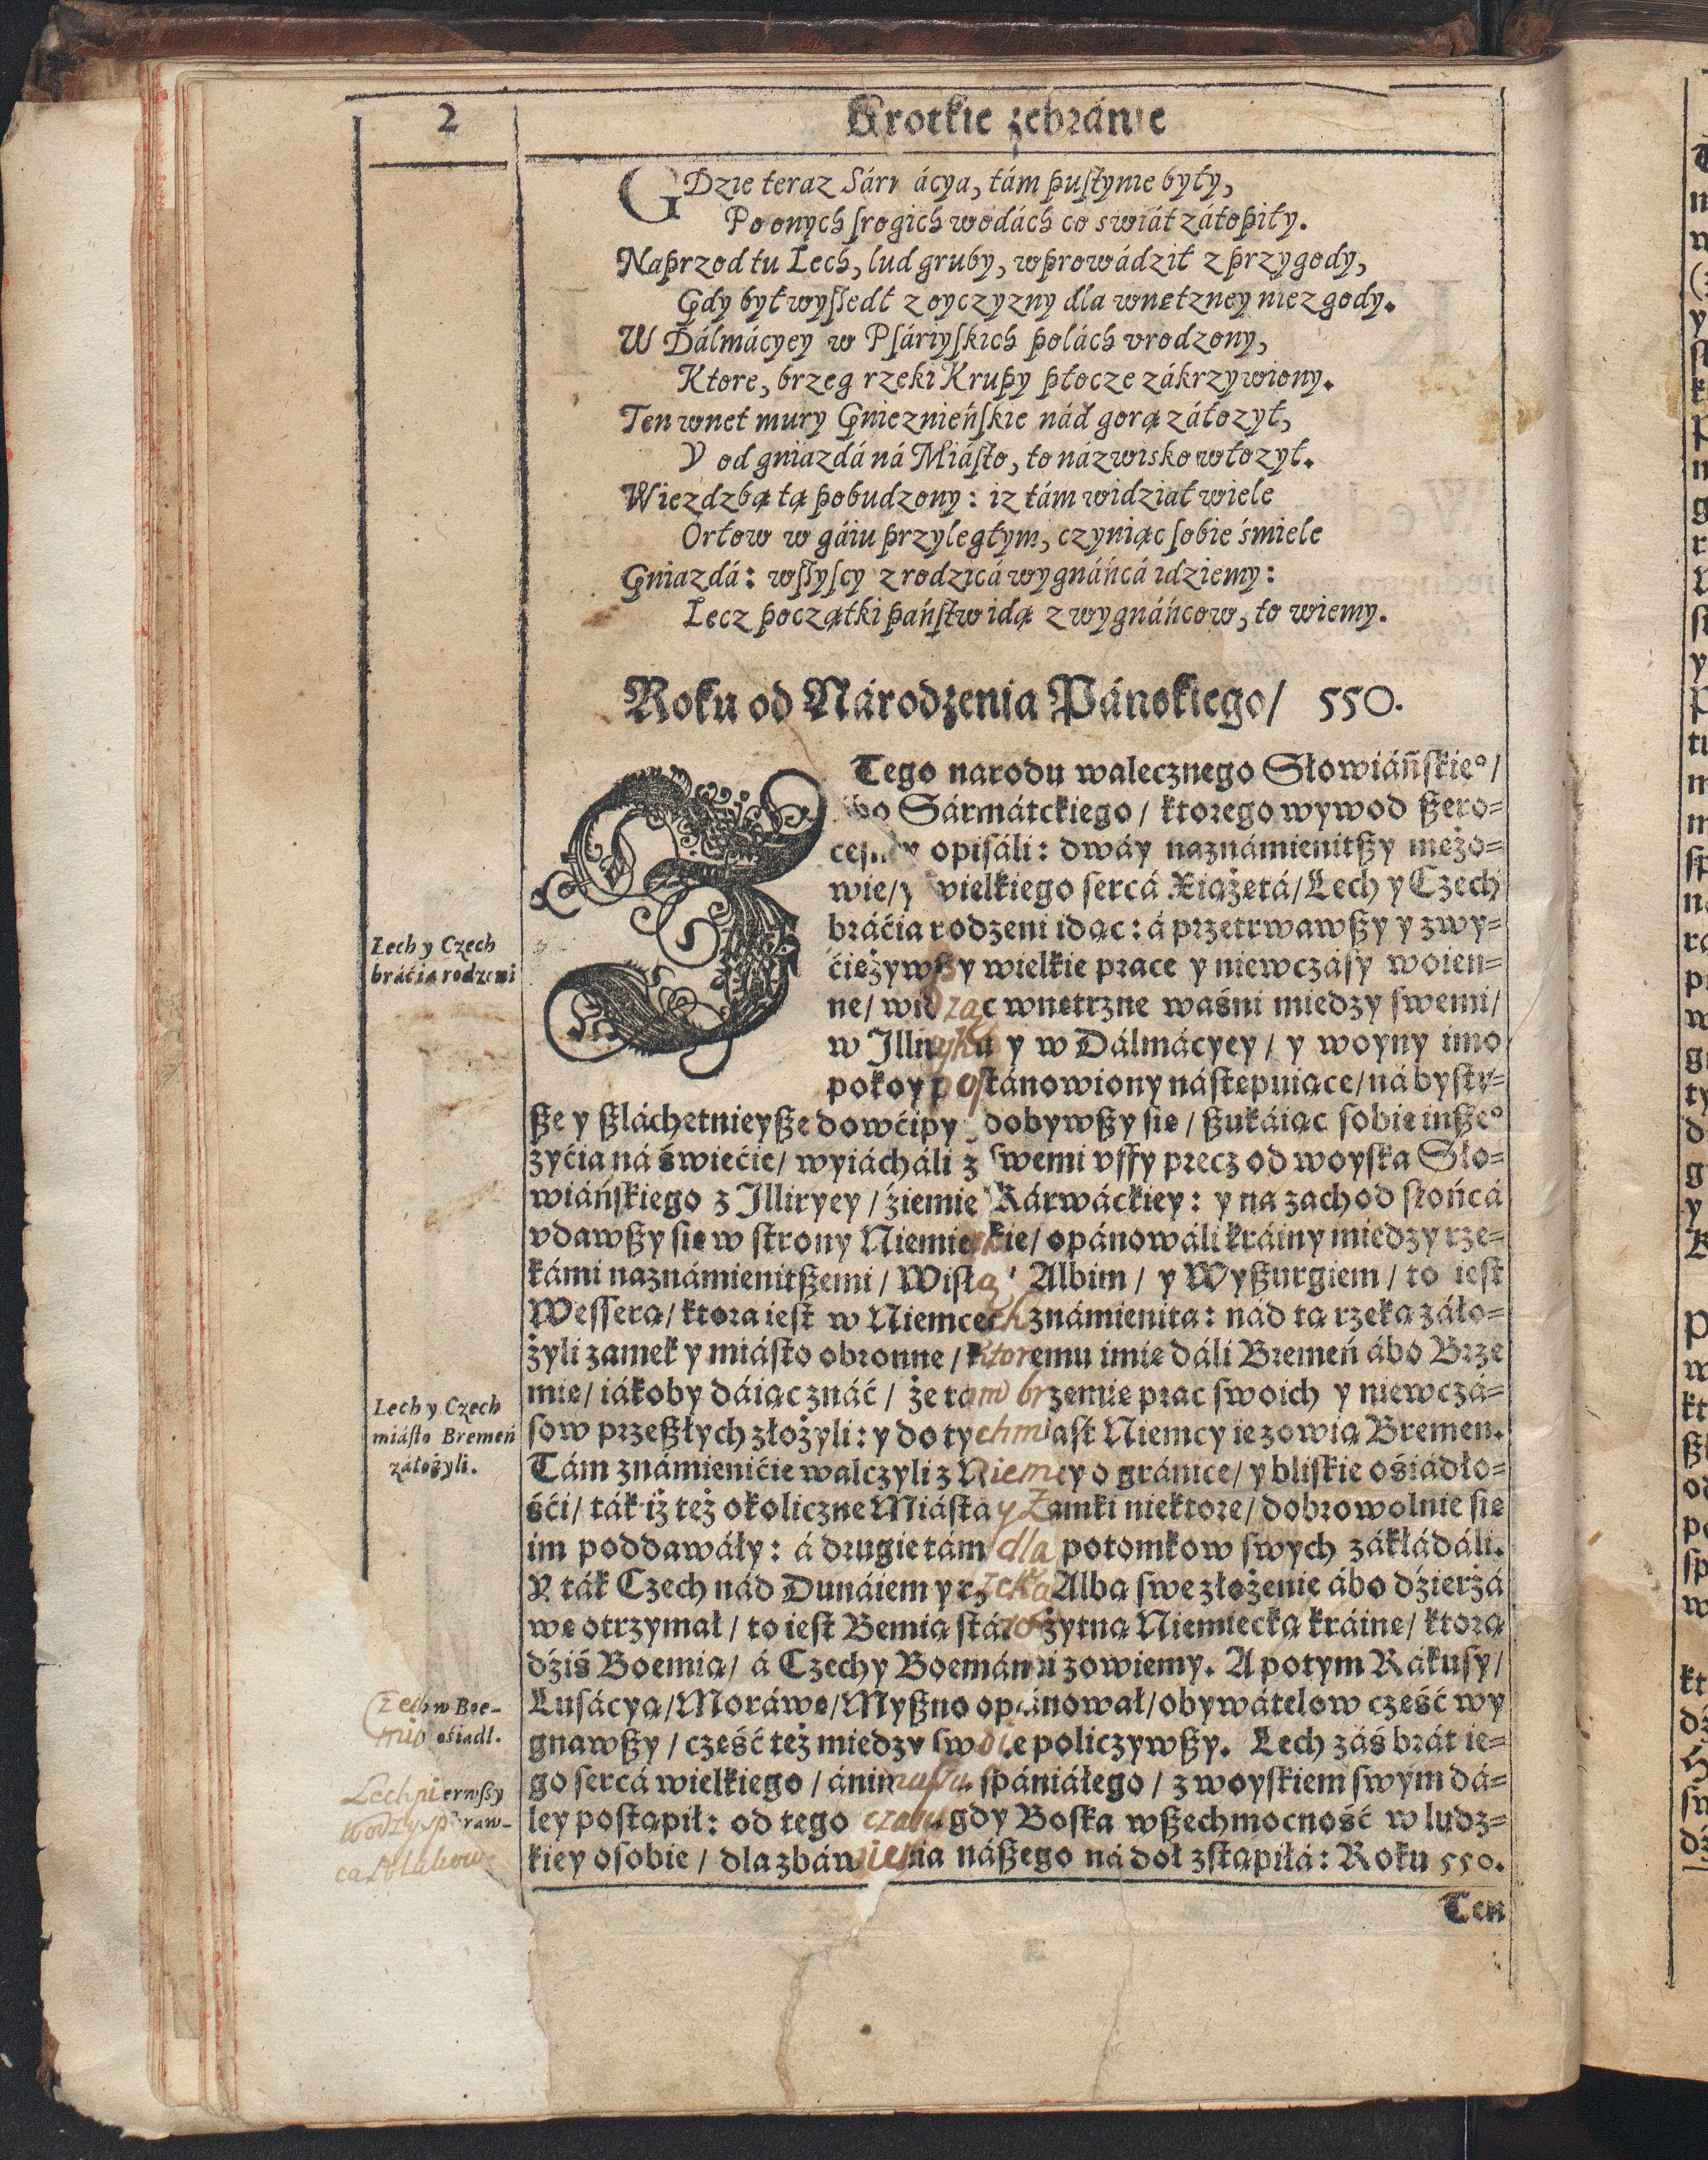 2
Krotkie zebránie
GDzie teraz Sárm ácya, tám puſtynie były,
Po onych ſrogich wodách co swiát zátopiły.
Naprzod tu Lech, lud gruby, wprowádził z przygody,
Gdy był wyſſedł z oyczyzny dla wnetzney niezgody.
W Dálmácyey w Pſáriyſkich polách vrodzony,
Ktore, brzeg rzeki Krupy płocze zákrzywiony.
Ten wnet mury Gnieznieńſkie nád gorą záłozył,
Y od gniazdá ná Miáſto, to názwisko włozył.
Wiezdzbą tą pobudzony: iz tám widział wiele
Orłow w gáiu przyległym, czyniąc ſobie śmiele
Gniazdá: wſſyſcy z rodzicá wygnáńcá idziemy:
Lecz początki páńſtw idą z wygnáńcow, to wiemy.
Roku od Národzenia Páńskiego/ 550.
Z Tego narodu walecznego Słowiáńſkie°/
ábo Sármátckiego / ktorego wywod ßero-
opiſáli: dwáy naznámienitßy mężo-
wie/ y wielkiego ſercá Xiążętá/ Lech y Czech
bráćia rodzeni idąc: á przetrwawßy y zwy-
ćiężywßy wielkie prace y niewczáſy woien-
ne/ widząc wnętrzne waśni miedzy ſwemi/
w Illiryku y w Dálmácyey / y woyny imo
pokoy poſtánowiony náſtępuiące/ ná byſtr-
ße y ßláchetnieyße dowćipy dobywßy ſie / ßukáiąc ſobie inße°
zyćia ná świećie/ wyiácháli z ſwemi vffy precz od woyſka Sło-
wiáńſkiego z Illiryey / źiemie Kárwáckiey: y na zachod ſłońcá
vdawßy ſie w ſtrony Niemieckie/ opánowáli kráiny miedzy rze-
kámi naznámienitßemi / Wiſłą / Albim / y Wyßurgiem / to ieſt
Weſſerą/ ktora ieſt w Niemcech známienita: nád tą rzeką záło-
żyli zamek y miáſto obronne / ktoremu imię dáli Bremeń ábo Brze
mię/ iákoby dáiąc znáć / że tam brzemię prac ſwoich y niewczá-
ſow przeßłych złożyli: y do tychmiaſt Niemcy ie zowią Bremen.
Tám známienićie walczyli z Niemcy o gránice/ y bliſkie ośiádło-
śći/ ták iż też okoliczne Miáſta y Zamki niektore/ dobrowolnie ſie
im poddawáły: á drugie tám dla potomkow ſwych zákłádáli.
Y ták Czech nád Dunáiem y rzeką Albą ſwe złożenie ábo dźierżá
we otrzymał / to ieſt Bemią ſtárożytną Niemiecką kráinę/ ktorą
dźiś Boemią/ á Czechy Boemánmi zowiemy. A potym Rákuſy/
Luſácyą/ Moráwę/ Myßno opánował/ obywátelow część wy
gnawßy / część też miedzy ſwoie policzywßy. Lech záś brát ie-
go ſercá wielkiego / ánimußu ſpániáłego / z woyſkiem ſwym dá-
ley poſtąpił: od tego czaſu gdy Boſka wßechmocność w ludz-
kiey oſobie / dla zbáwienia náßego ná doł zſtąpiłá: Roku 550.
Ten
Lech y Czech
bráćia rodzeni
Lech y Czech
miáſto Bremeń
záłożyli.
Czech w Boe-
mio ośiadł.
Lech pierwſſy
wodz y ſpraw-
ca Polakow